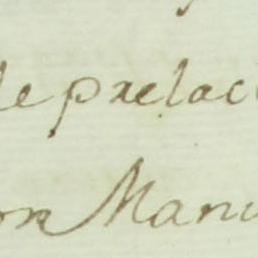 de prelaci
on Manu